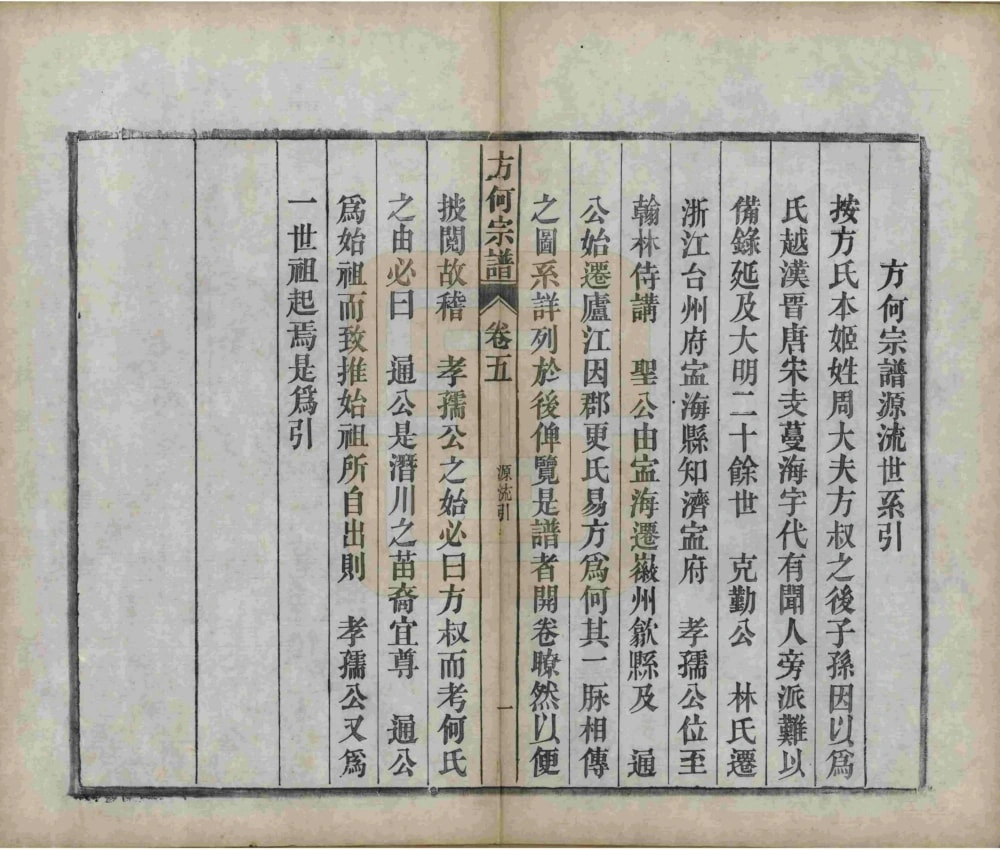 方何宗譜源流世系引
按方氏本姬姓周大夫方叔之後子孫因以爲
氏越漢晉唐宋支蔓海宇代有聞人旁派難以
備錄延及大明二十餘世　克勤公　林氏遷
浙江台州府寍海縣知濟寍府　孝孺公位至
翰林侍講　聖公由寍海遷徽州歙縣及　通
公始遷廬江因郡更氏易方爲何其一脉相傳
之圖系詳列於後俾覽是譜者開卷瞭然以便
方何宗譜　卷五　源流引　一
披閱故稽　孝孺公之始必曰方叔而考何氏
之由必曰　通公是潛川之苗裔宜尊　通公
爲始祖而致推始祖所自出則　孝孺公又爲
一世祖起焉是爲引